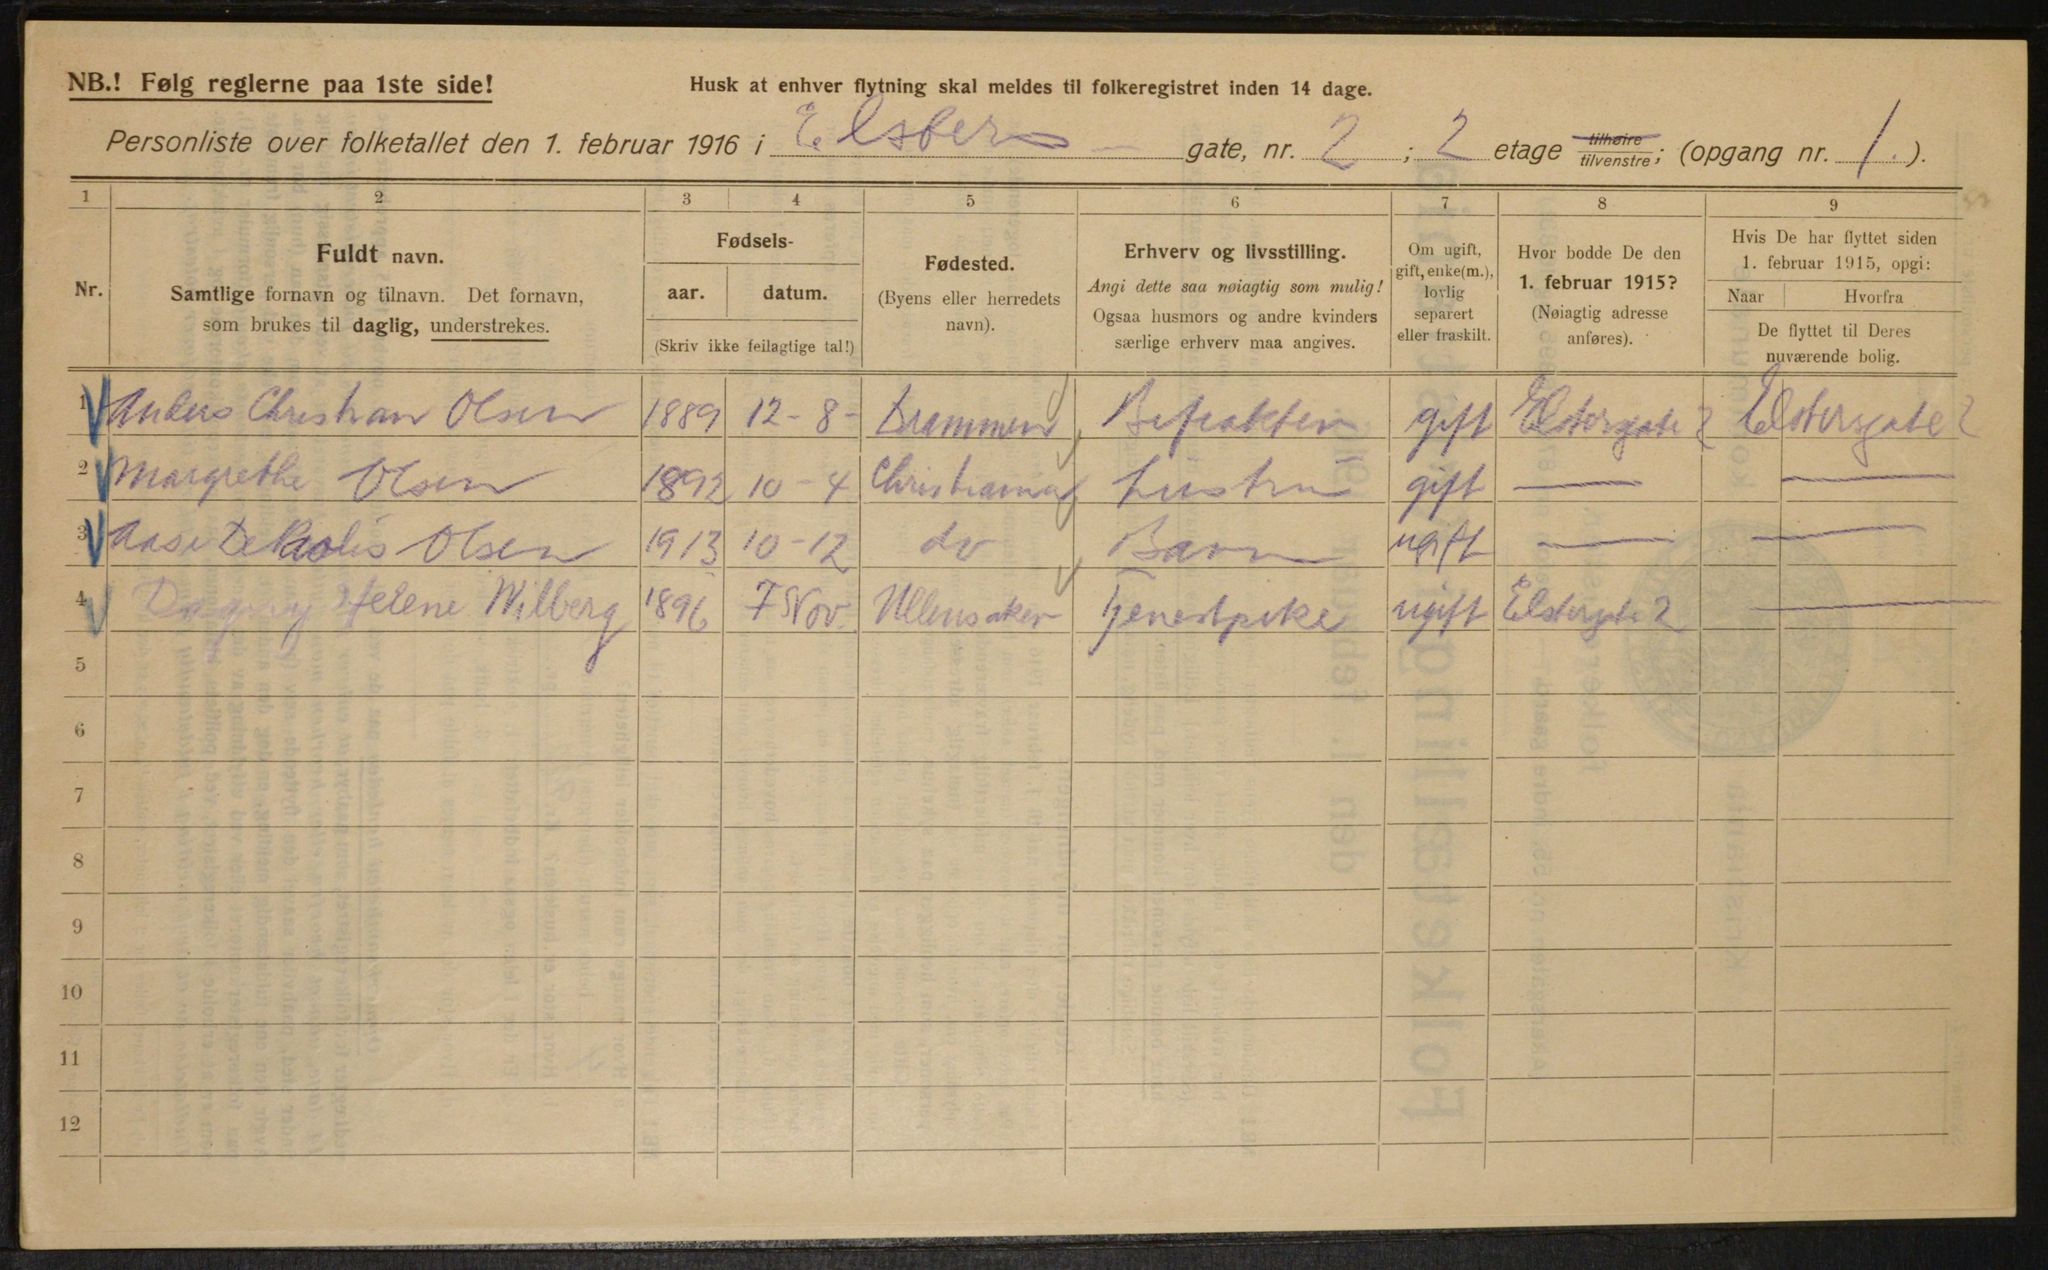 NB.! Følg reglerne paa 1ste side!
Husk at enhver flytning skal meldes til folkeregistret inden 14 dage.
Personliste over folketallet den 1. februar 1916 i Elsters gate, nr. 2; 2 etage tilhøire tilvenstre; (opgang nr. 1.).
1 2 3 4 5 6 7 8 9
Nr.
Fuldt navn.
Samtlige fornavn og tilnavn. Det fornavn,
som brukes til daglig, understrekes.
Fødsels-
aar. datum.
(Skriv ikke feilagtige tal!)
Fødested.
(Byens eller herredets
navn).
Erhverv og livsstilling.
Angi dette saa nøiagtig som mulig!
Ogsaa husmors og andre kvinders
særlige erhverv maa angives.
Om ugift,
gift, enke(m.),
lovlig
separert
eller fraskilt.
Hvor bodde De den
1. februar 1915?
(Nøiagtig adresse
anføres).
Hvis De har flyttet siden
1. februar 1915, opgi:
Naar Hvorfra
De flyttet til Deres
nuværende bolig.
1 Anders Christian Olsen 1889 12-8- Drammen gift Elstersgate 2 Elstersgate 2
2 Margrethe Olsen 1892 10-4 Christiania Hustru gift
3 Aase Olsen 1913 10-12 do Barn ugift
4 Dagny Helene Wilberg 1896 7 Nov. Ullensaker Tjenestpike ugift Elstergate 2
5
6
7
8
9
10
11
12